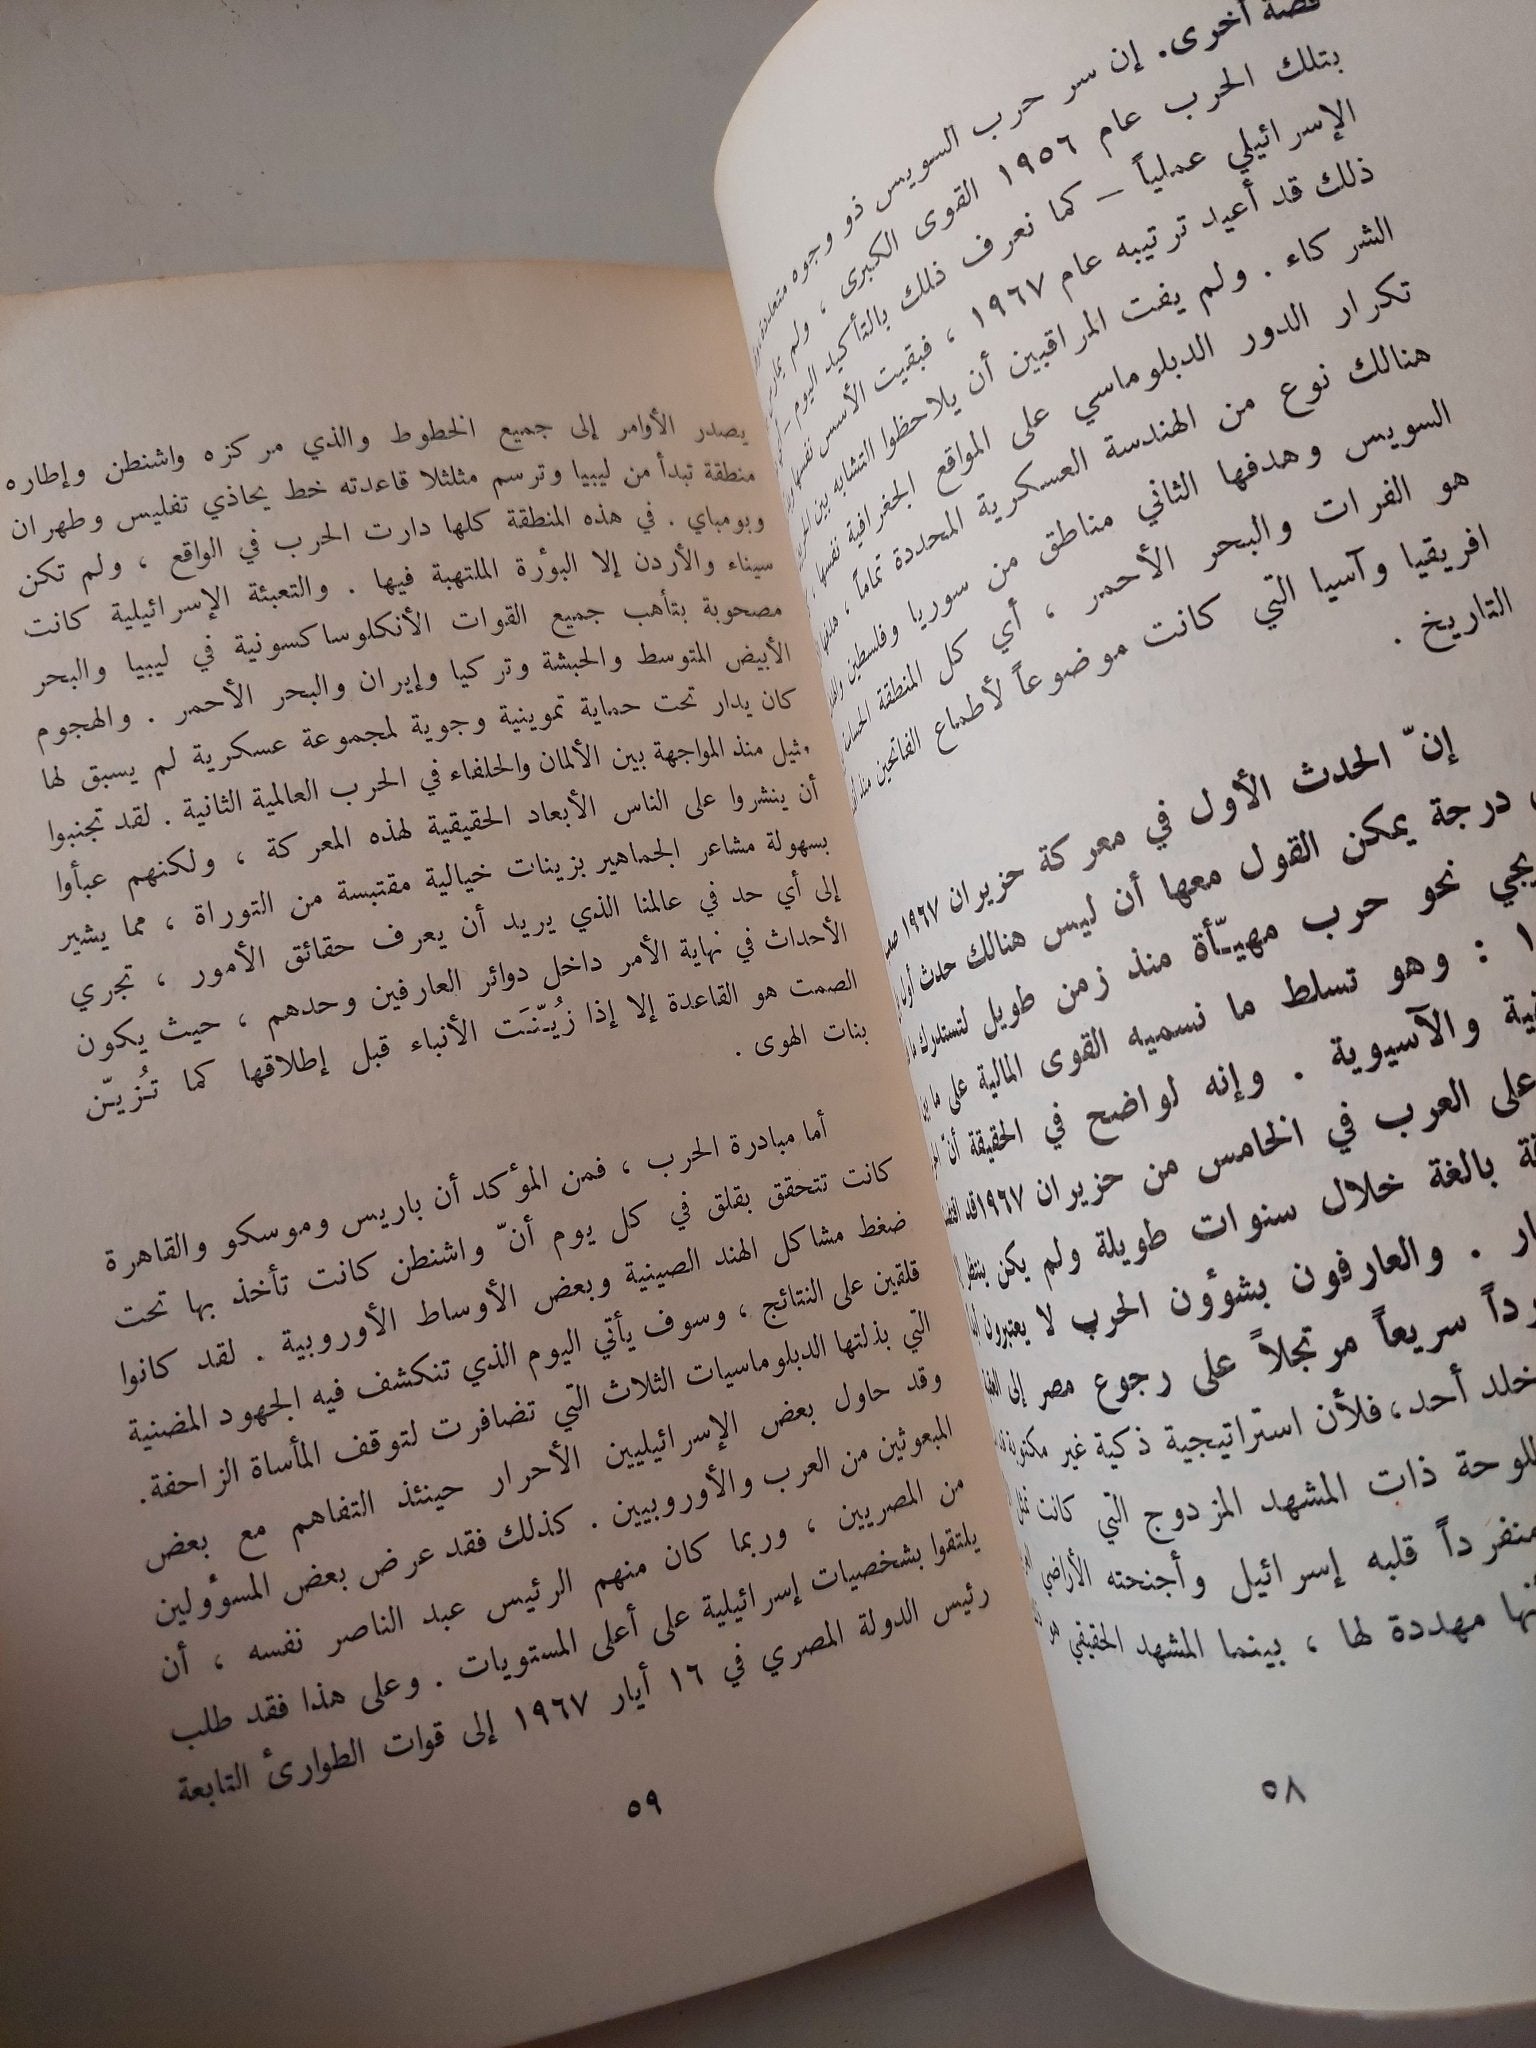 قصة أخرى. إن سر حرب السويس ذو وجوه متعددة
بتلك الحرب عام ١٩٥٦ القوى الكبرى ، ولم
الإسرائيلي عملياً – كما نعرف ذلك بالتأكيد اليوم –
ذلك قد أعيد ترتيبه عام ١٩٦٧ ، فبقيت الأسس نفسها
الشركاء . ولم يفت المراقبين أن يلاحظوا التشابه بين
تكرار الدور الدبلوماسي على المواقع الجغرافية نفسها
هنالك نوع من الهندسة العسكرية المحددة تماماً ،
السويس وهدفها الثاني مناطق من سوريا وفلسطين
هو الفرات والبحر الأحمر ، أي كل المنطقة
افريقيا وآسيا التي كانت موضوعاً لأطماع الفاتحين منذ
التاريخ .
إنّ الحدث الأول في معركة حزيران ١٩٦٧
درجة يمكن القول معها أن ليس هنالك حدث أول
نحو حرب مهيـّأة منذ زمن طويل لتستدرك
: وهو تسلط ما نسميه القوى المالية على ما
والآسيوية . وإنه لواضح في الحقيقة أنّ
على العرب في الخامس من حزيران ١٩٦٧ قد
بالغة خلال سنوات طويلة ولم يكن ينتظر
. والعارفون بشؤون الحرب لا يعتبرون
رداً سريعاً مرتجلاً على رجوع مصر إلى
خلد أحد، فلأن استراتيجية ذكية غير مكتوبة
ذات المشهد المزدوج التي كانت تمثل
منفرداً قلبه إسرائيل وأجنحته الأراضي
مهددة لها ، بينما المشهد الحقيقي هو
٥٨
يصدر الأوامر إلى جميع الخطوط والذي مركزه واشنطن وإطاره
منطقة تبدأ من ليبيا وترسم مثلثلا قاعدته خط يحاذي تفليس وطهران
وبومباي . في هذه المنطقة كلها دارت الحرب في الواقع ، ولم تكن
سيناء والأردن إلا البؤرة الملتهبة فيها . والتعبئة الإسرائيلية كانت
مصحوبة بتأهب جميع القوات الأنكلوساكسونية في ليبيا والبحر
الأبيض المتوسط والحبشة وتركيا وإيران والبحر الأحمر . والهجوم
كان يدار تحت حماية تموينية وجوية لمجموعة عسكرية لم يسبق لها
مثيل منذ المواجهة بين الألمان والحلفاء في الحرب العالمية الثانية . لقد تجنبوا
أن ينشروا على الناس الأبعاد الحقيقية لهذه المعركة ، ولكنهم عبأوا
بسهولة مشاعر الجماهير بزينات خيالية مقتبسة من التوراة ، مما يشير
إلى أي حد في عالمنا الذي يريد أن يعرف حقائق الأمور ، تجري
الأحداث في نهاية الأمر داخل دوائر العارفين وحدهم ، حيث يكون
الصمت هو القاعدة إلا إذا زُيـّنـَت الأنباء قبل إطلاقها كما تـُزيـّن
بنات الهوى .
أما مبادرة الحرب ، فمن المؤكد أن باريس وموسكو والقاهرة
كانت تتحقق بقلق في كل يوم أنّ واشنطن كانت تأخذ بها تحت
ضغط مشاكل الهند الصينية وبعض الأوساط الأوروبية . لقد كانوا
قلقين على النتائج ، وسوف يأتي اليوم الذي تنكشف فيه الجهود المضنية
التي بذلتها الدبلوماسيات الثلاث التي تضافرت لتوقف المأساة الزاحفة.
وقد حاول بعض الإسرائيليين الأحرار حينئذ التفاهم مع بعض
المبعوثين من العرب والأوروبيين . كذلك فقد عرض بعض المسؤولين
من المصريين ، وربما كان منهم الرئيس عبد الناصر نفسه ، أن
يلتقوا بشخصيات إسرائيلية على أعلى المستويات . وعلى هذا فقد طلب
رئيس الدولة المصري في ١٦ أيار ١٩٦٧ إلى قوات الطوارئ التابعة
٥٩